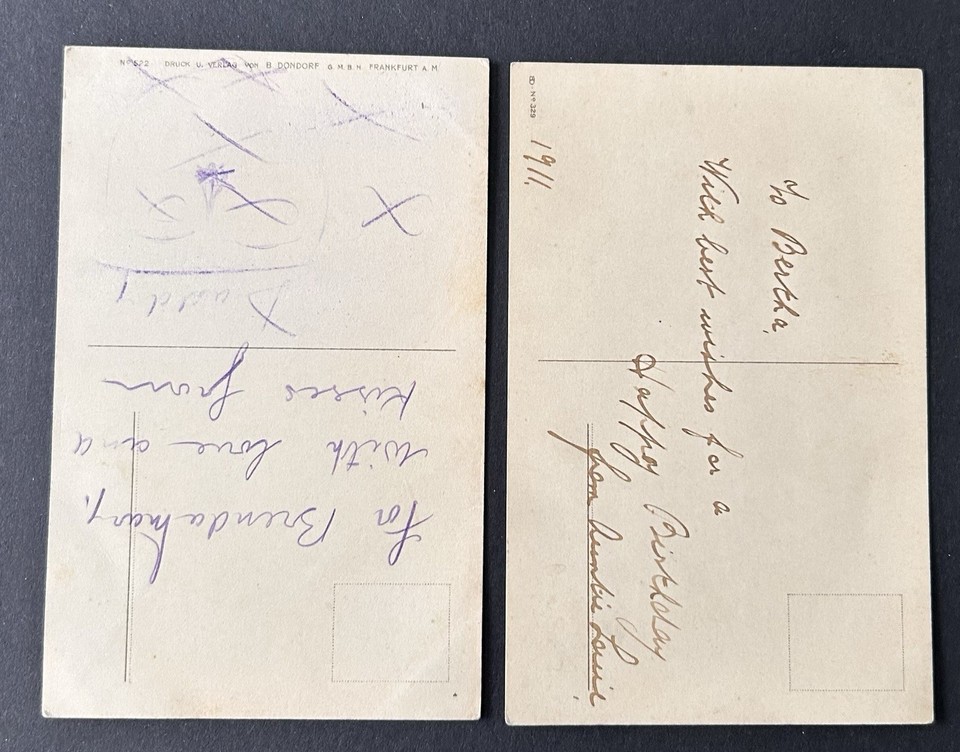 No 522 DRUCK U. VERLAG VON B. DONDORF G. M. B. H. FRANKFURT A. M.
For Brendamary,
With love and
kisses from
Daddy
X X X
X
X X X
BD · No 329
1911.
To Bertha,
With best wishes for a
Happy Birthday
from Auntie Louie